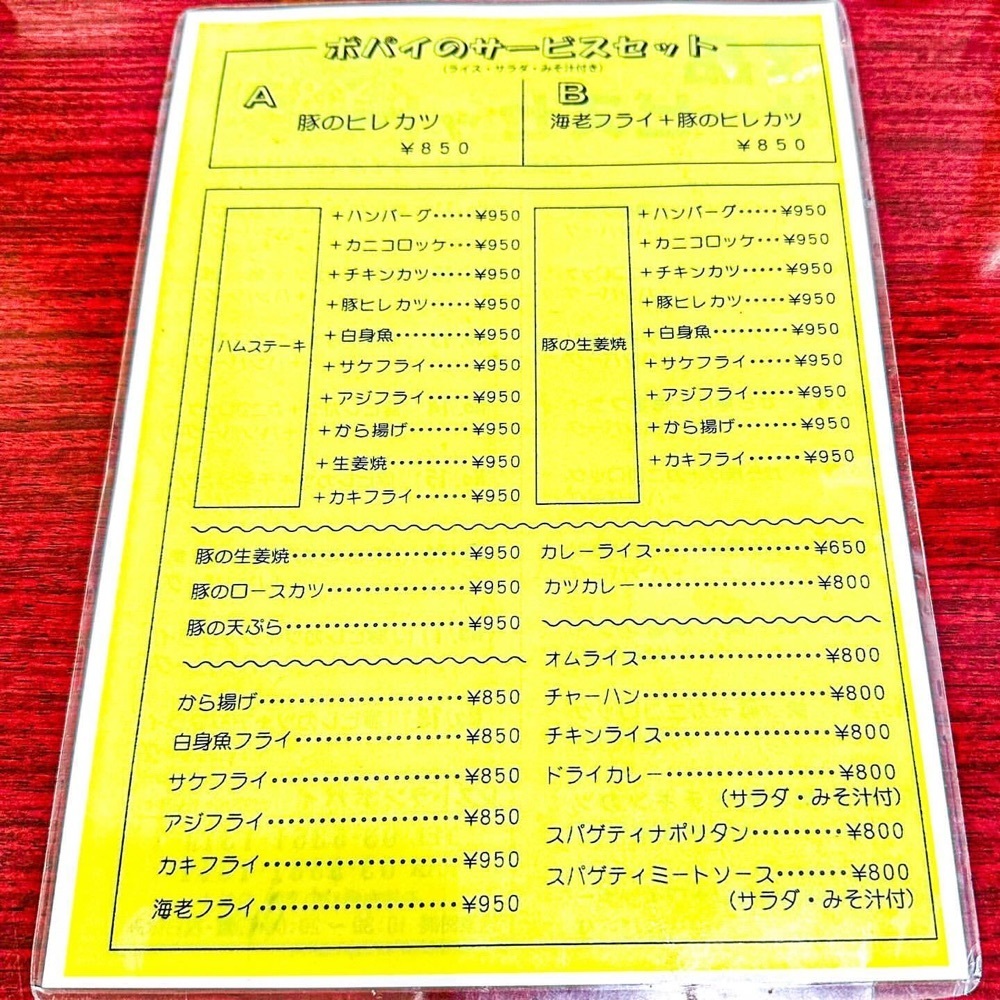 ポパイのサービスセット
(ライス・サラダ・みそ汁付き)
A
豚のヒレカツ
¥850
B
海老フライ+豚のヒレカツ
¥850
ハムステーキ
+ハンバーグ・・・・・¥950
+カニコロッケ・・・¥950
+チキンカツ・・・・・¥950
+豚ヒレカツ・・・・・¥950
+白身魚・・・・・・・・・¥950
+サケフライ・・・・・¥950
+アジフライ・・・・・¥950
+から揚げ・・・・・・・¥950
+生姜焼・・・・・・・・・¥950
+カキフライ・・・・・¥950
豚の生姜焼
+ハンバーグ・・・・・¥950
+カニコロッケ・・・¥950
+チキンカツ・・・・・¥950
+豚ヒレカツ・・・・・¥950
+白身魚・・・・・・・・・¥950
+サケフライ・・・・・¥950
+アジフライ・・・・・¥950
+から揚げ・・・・・・・¥950
+カキフライ・・・・・¥950
豚の生姜焼・・・・・・・・・・・・・・・・・・¥950
豚のロースカツ・・・・・・・・・・・・・・¥950
豚の天ぷら・・・・・・・・・・・・・・・・・・¥950
から揚げ・・・・・・・・・・・・・・・・・・・・¥850
白身魚フライ・・・・・・・・・・・・・・・・¥850
サケフライ・・・・・・・・・・・・・・・・・・¥850
アジフライ・・・・・・・・・・・・・・・・・・¥850
カキフライ・・・・・・・・・・・・・・・・・・¥950
海老フライ・・・・・・・・・・・・・・・・・・¥950
カレーライス・・・・・・・・・・・・・・・・¥650
カツカレー・・・・・・・・・・・・・・・・・・¥800
オムライス・・・・・・・・・・・・・・・・・・¥800
チャーハン・・・・・・・・・・・・・・・・・・¥800
チキンライス・・・・・・・・・・・・・・・・¥800
ドライカレー・・・・・・・・・・・・・・・・¥800
(サラダ・みそ汁付)
スパゲティナポリタン・・・・・・・・・¥800
スパゲティミートソース・・・・・・・¥800
(サラダ・みそ汁付)